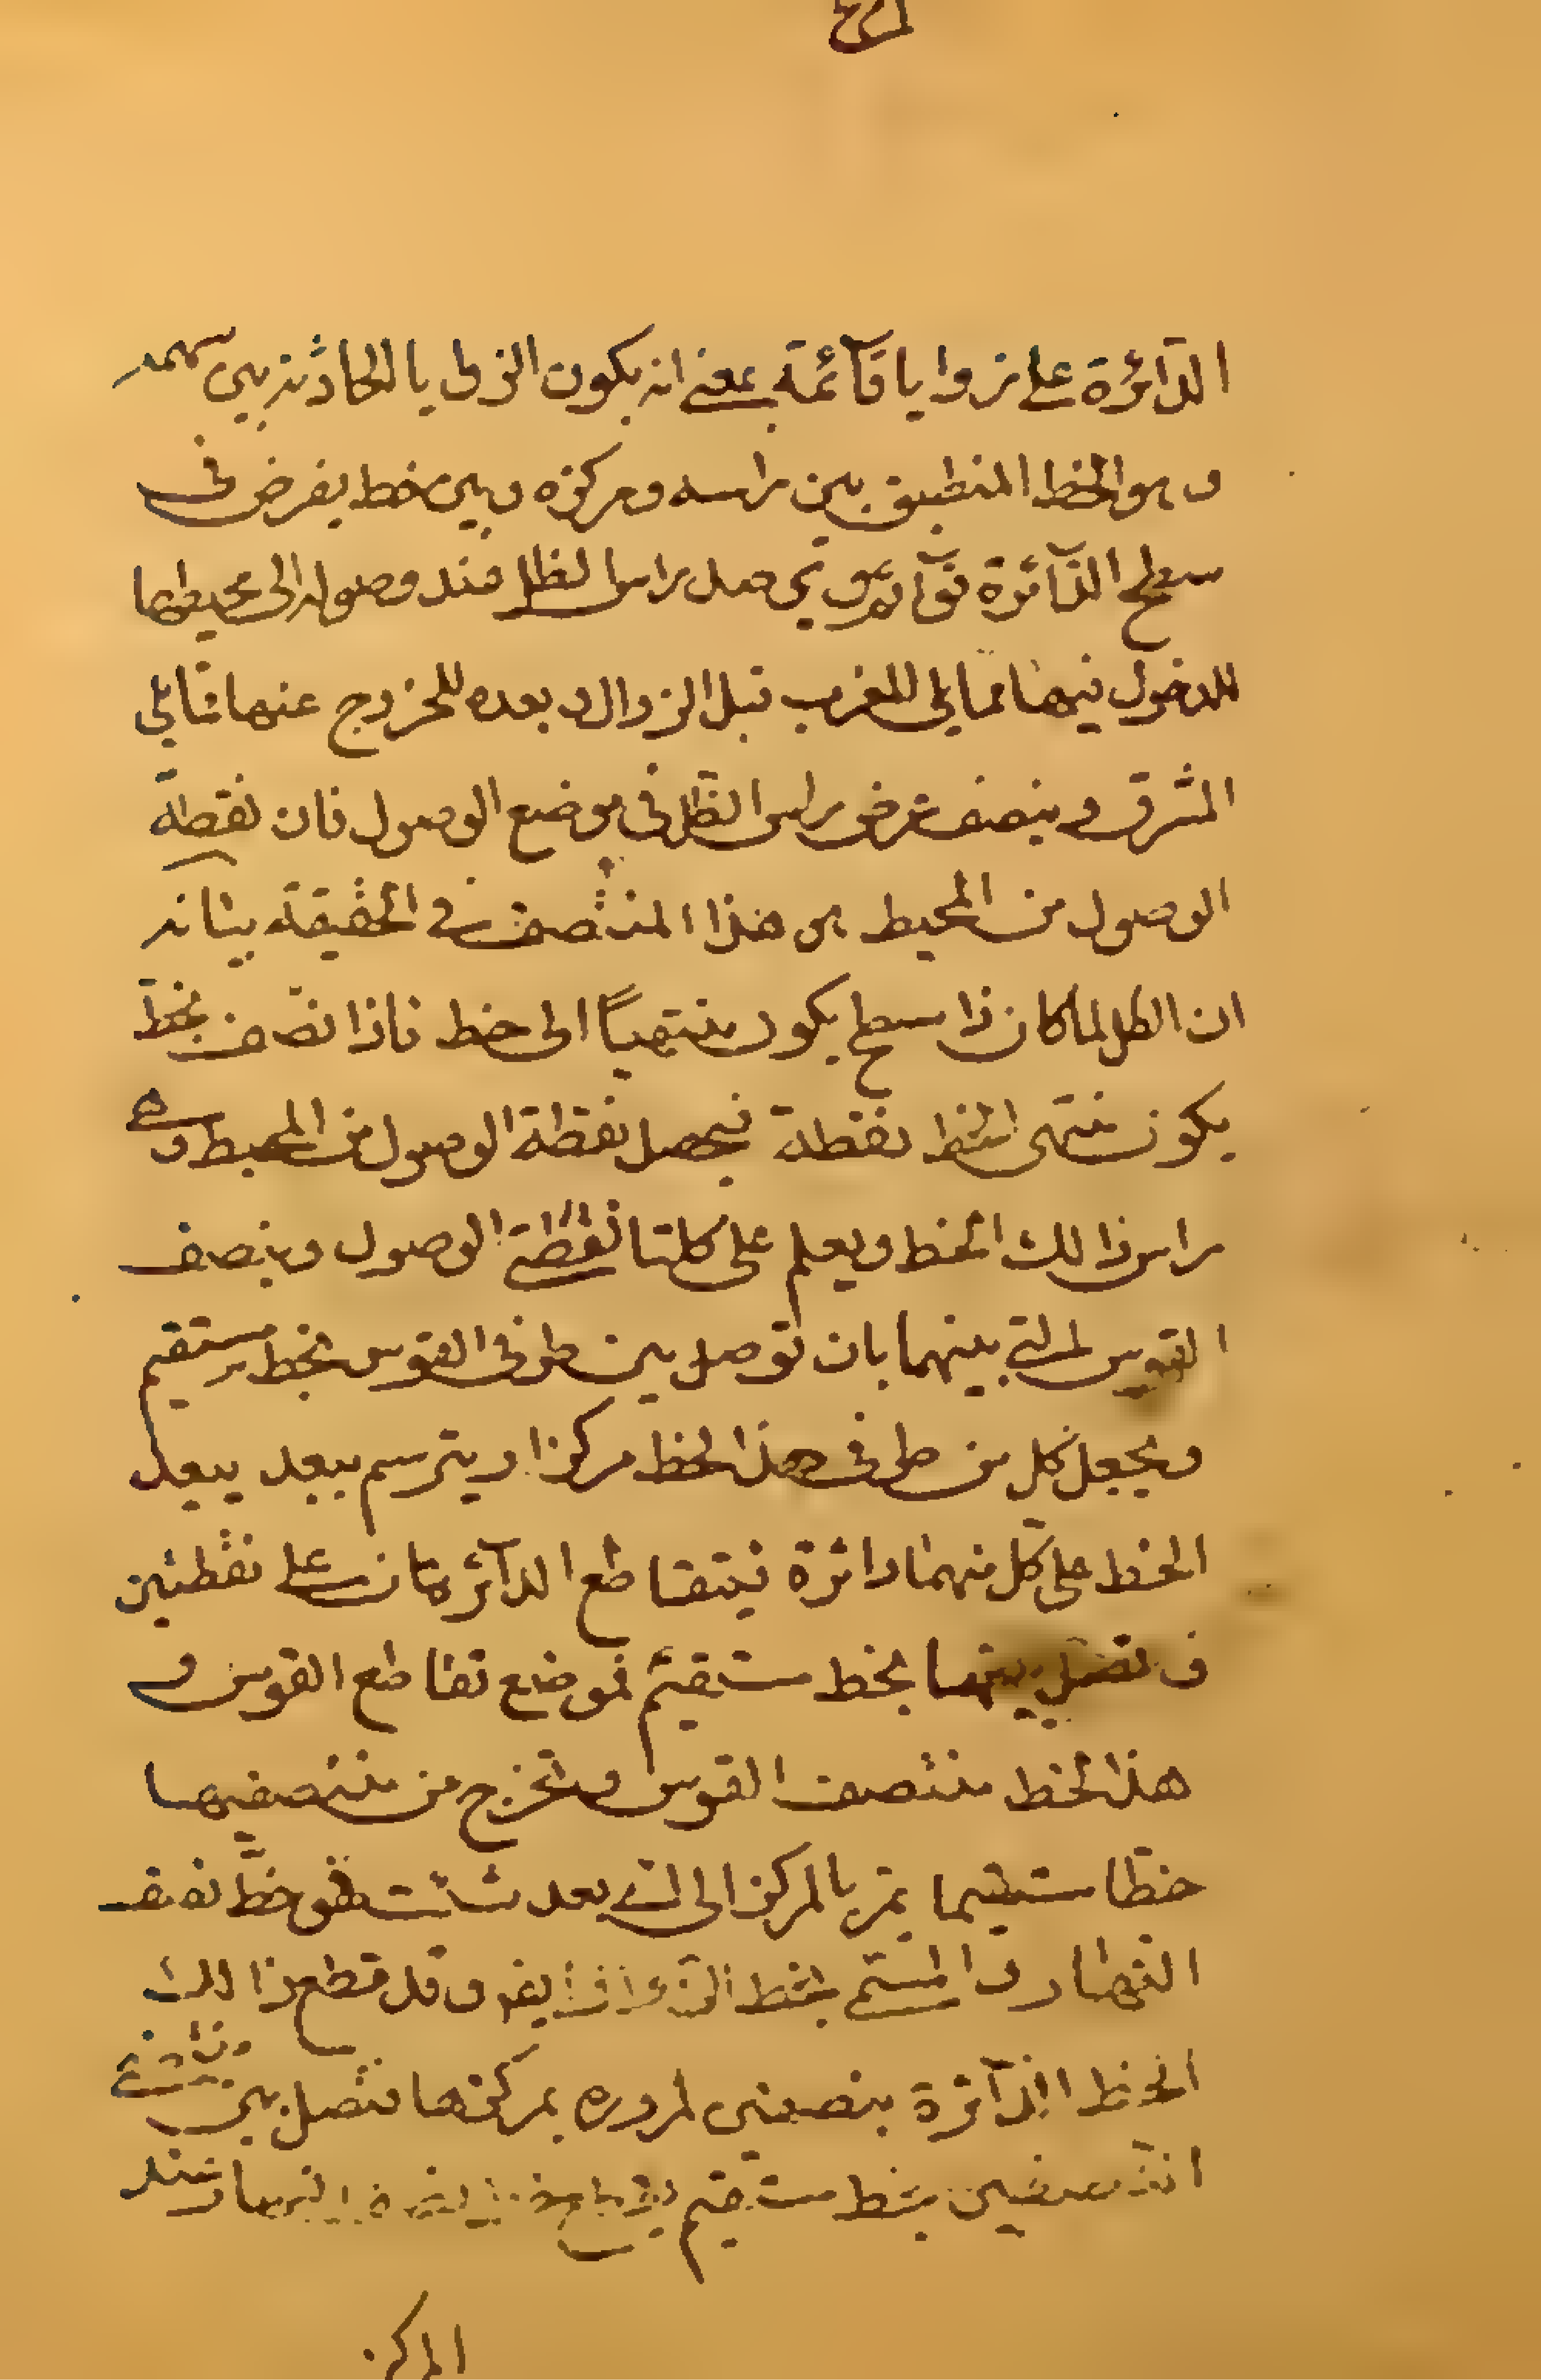 الدآئرة على زوايا قآئمة بمعنى انه يكون الزوايا الحادثة بين سهمه
وهو الخط المنطبق بين راسه ومركزه وبين خط يفرض فى
سطح الدآئرة راس الظل عند وصوله الى محيطها
للدخول فيها مما يلى المغرب قبل الزوال وبعده للخروج عنها مما يلى
المشرق وينصف عرض راس الظل فى موضع الوصول فان نقطة
الوصول من المحيط هى هذا المنتصف فى الحقيقة بيانه
ان الظل لما كان ذا سطح يكون منتهياً الى خط فاذا نصّف بخط
يكون منتهى الخط نقطة فيحصل نقطة الوصول من المحيط وهى
راس ذالك الخط ويعلم على كلتا نقطتى الوصول وينصف
القوس التى بينهما بان توصل بين طرفى القوس بخط مستقيم
ويجعل كل من طرفى هذا الخط مركزا ويترسم ببعد يبعد
الخط على كل منهما دائرة فيتقاطع الدآئرتان على نقطتين
فتصل بينهما بخط مستقيم فموضع تقاطع القوس و
هذا الخط منتصف القوس وتخرج من منتصفيها
خطا مستقيما يمر بالمركز الى اى بعد شئت فهو خط نصف
النهار المستى بخط الزوال وقد قطع ذالك
الخط الدآئرة بنصفين لمروره بمركزها فتصل بين
النصفين بخط مستقيم
المركز